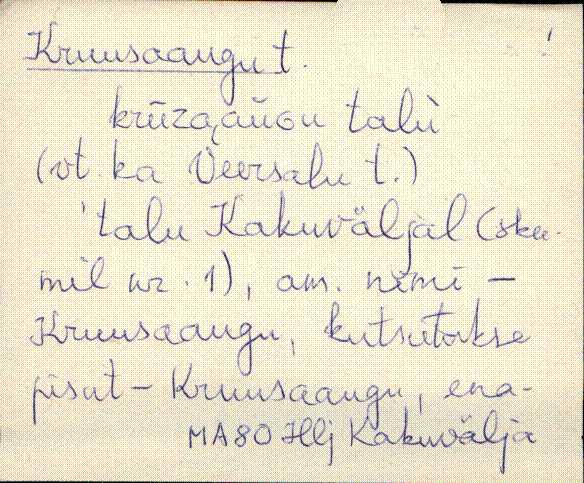 Kruusaangu t.
krūzaaŋGu talù
(vt. ka Veersalu t.)
'talu Kakuväljal (skee-
mil nr. 1), am. nimi –
Kruusaangu, kutsutakse
pisut – Kruusaangu, ena-
MA80 Hlj Kakuvälja